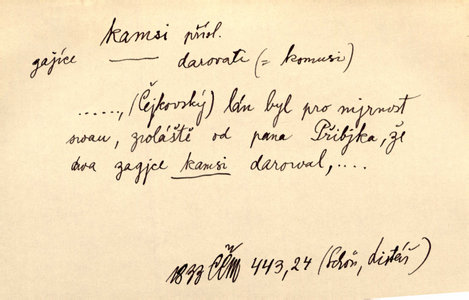 kamsi přísl.
zajíce —— darovati (= komusi)
......, (Čejkovský) lán byl pro mjrnost
swau, zwláště od pana Přibjka, že
dwa zagjce kamsi darowal, ....
1833 ČČM 443,24 (Schön, Listář)